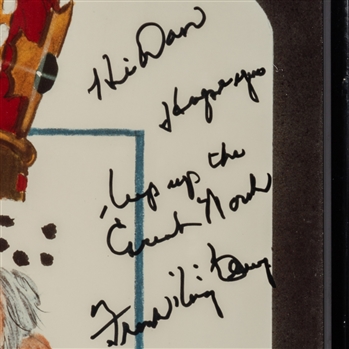 Hi Dan
Hope you
keep up the
Great Work
Frank